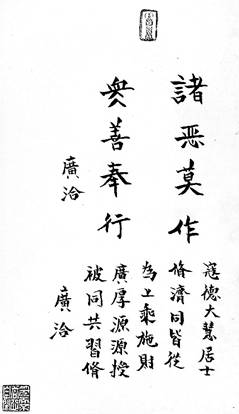 諸恶莫作
衆善奉行
廣洽
寇德大慧居士
脩濟同皆從
為上乘施則
廣厚源源授
被同共習脩
廣洽